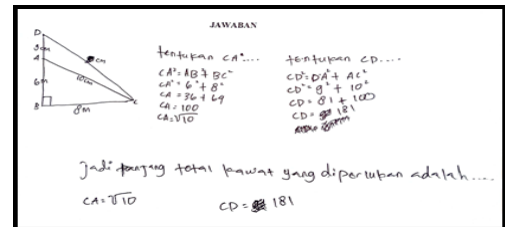 JAWABAN
D
3cm
A
cm
6m
10cm
B
8m
C
tentukan CA²....
CA² = AB² + BC²
CA² = 6² + 8²
CA = 36 + 69
CA = 100
CA = √10
tentukan CD....
CD² = DA² + AC²
CD² = 9² + 10²
CD = 81 + 100
CD = 181
Jadi panjang total kawat yang diperlukan adalah....
CA = √10
CD = 181